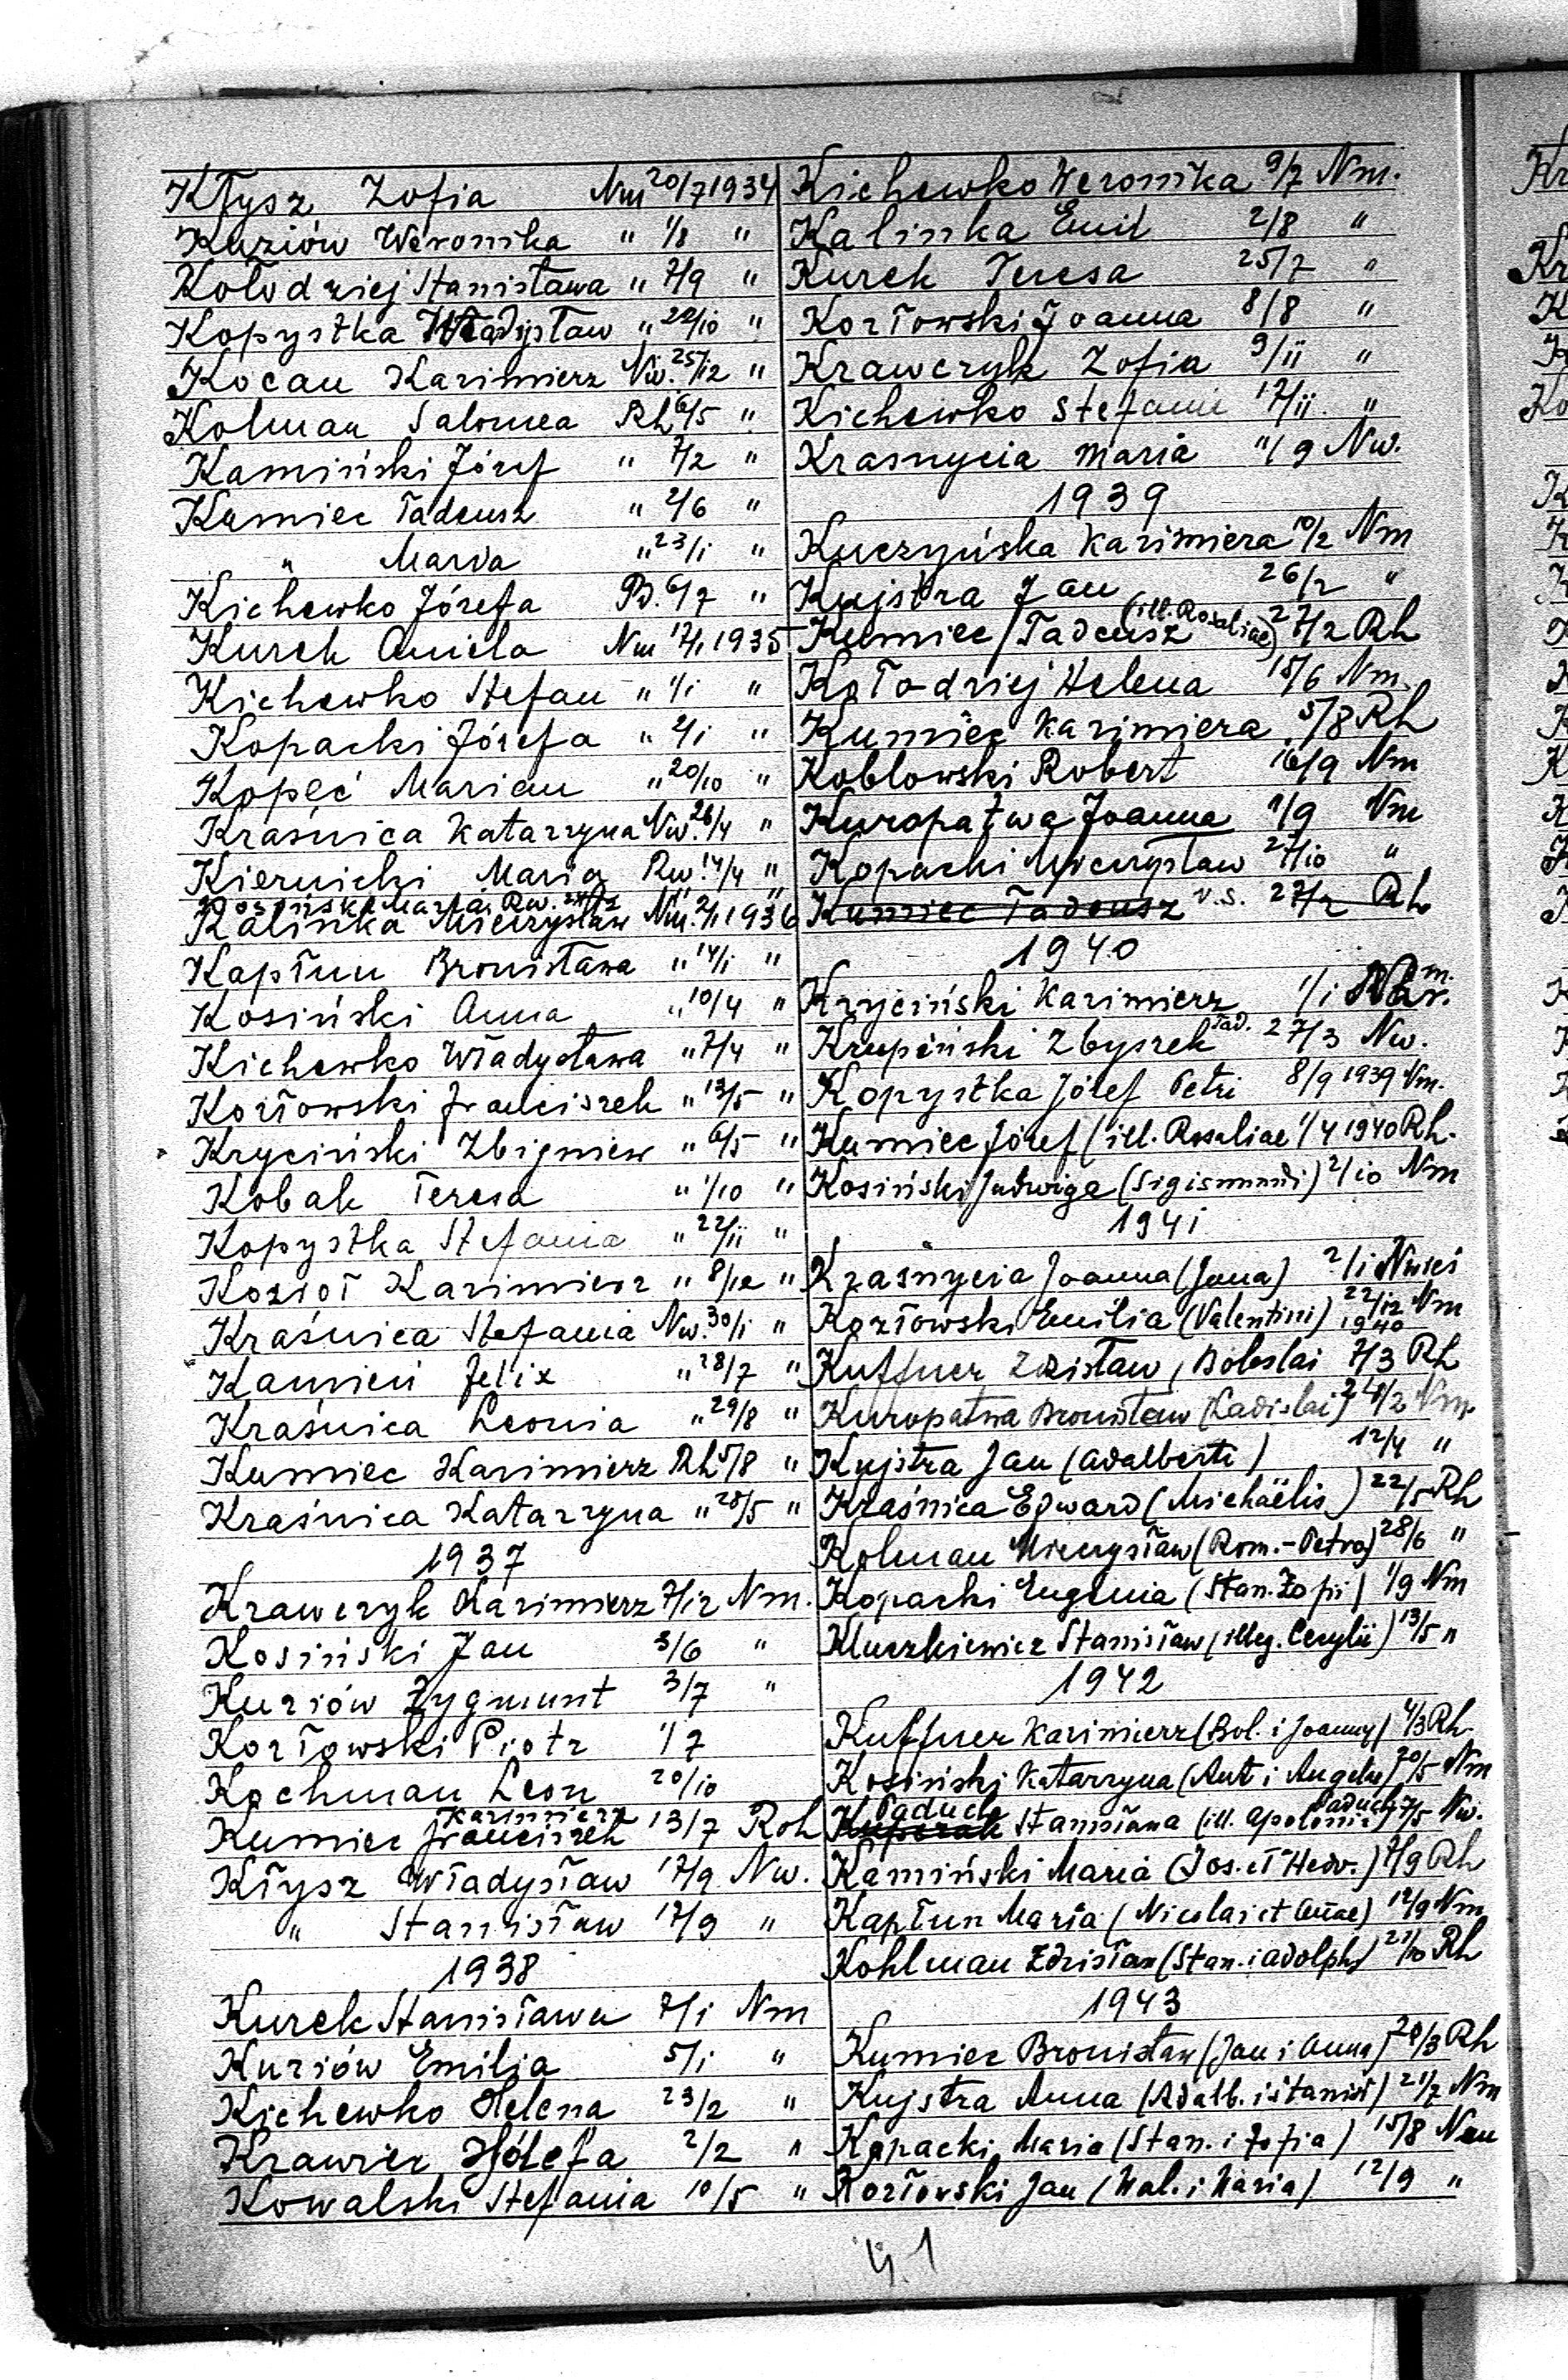 Kłysz Zofia Nm 20/7 1934
Kuziów Weronika " 1/8 "
Kołodziej Stanisława " 7/9 "
Kopystka Władysław " 22/10 "
Kocan Kazimierz Nw. 25/12 "
Kolman Salomea Rh 6/5 "
Kamiński Józef " 7/2 "
Kumiec Tadeusz " 2/6 "
" Maria " 23/1 "
Kichewko Józefa 6/7 "
Kurek Aniela Nm 17/1 1935
Kichewko Stefan " 1/1 "
Kopacki Józefa " 2/1 "
Kopeć Marian " 20/10 "
Kraśnica Katarzyna Nw. 26/4 "
Kiernicki Maria Rw. 14/4 "
Maria Rw.
Kalinka Mieczysław Nm. 2/1 1936
Kapłun Bronisława " 14/1 "
Kosiński Anna " 10/4 "
Kichewko Władysława " 7/4 "
Kozłowski Franciszek " 13/5 "
Kryciński Zbigniew " 6/5 "
Kobak Teresa " 1/10 "
Kopystka Stefania " 22/11 "
Kozioł Kazimierz " 8/12 "
Kraśnica Stefania Nw. 30/1 "
Kamień Felix " 28/7 "
Kraśnica Leonia " 29/8 "
Kumiec Kazimierz Rh 5/8 "
Kraśnica Katarzyna " 28/5 "
1937
Krawczyk Kazimierz 7/12 Nm.
Kosiński Jan 3/6 "
Kuziów Zygmunt 3/7 "
Kozłowski Piotr 1/7
Kochman Leon 20/10
Kazimierz
Kumiec Franciszek 13/7 Roh
Kłysz Władysław 17/9 Nw.
" Stanisław 17/9 "
1938
Kurek Stanisława 7/1 Nm
Kuziów Emilia 5/1 "
Kichewko Helena 23/2 "
Krawiec Józefa 2/2 "
Kowalski Stefania 10/5 "
Kichewko Weronika 9/7 Nm.
Kalinka Emil 2/8 "
Kurek Teresa 25/7 "
Kozłowski Joanna 8/8 "
Krawczyk Zofia 9/11 "
Kichewko Stefanie 17/11 "
Krasnycia Maria 11/9 Nw.
1939
Kuczyńska Kazimiera 10/2 Nm
Kujstra Jan 26/2 "
Kumiec Tadeusz (ill. Rosaliae) 27/2 Rh
Kołodziej Helena 15/6 Nm.
Kumiec Kazimiera 5/8 Rh
Koblowski Robert 16/9 Nm
Kuropatwa Joanna 1/9 Nm
Kopacki Mieczysław 27/10 "
Kumiec Tadeusz v.s. 27/2 Rh
1940
Kryciński Kazimierz 1/1 Nm.
Krupiński Zbyszek Tad. 27/3 Nw.
Kopystka Józef Petri 8/9 1939 Nm.
Kumiec Józef (ill. Rosaliae 1/4 1940 Rh.
Kosiński Jadwiga (Sigismundi) 2/10 Nm
1941
Krasnycia Joanna (Jana) 2/1 Nwieś
Kozłowski Emilia (Valentini) 22/12 1940 Nm
Kuffner Zdzisław, Boleslai 7/3 Rh
Kuropatwa Bronisław (Ladislai) 28/2 Nm.
Kujstra Jan (Adalberti) 12/4 "
Kraśnica Edward (Michaëlis) 22/5 Rh
Kolman Mieczysław (Rom.-Petro) 28/6 "
Kopacki Eugenia (Stan. Zofii) 1/9 Nm
Kluczkiewicz Stanisław (illeg. Cecylii) 13/5 "
1942
Kuffner Kazimierz (Bol. i Joanny) 4/3 Rh.
Kosiński Katarzyna (Ant i Angelae) 20/5 Nm
Paduch Stanisława (ill. Apolonia Paduch) 7/5 Nw.
Kamiński Maria (Jos. et Hedv.) 7/9 Rh
Kapłun Maria (Nicolai et Annae) 12/9 Nm
Kohlman Zdzisław (Stan. i Adolph) 21/10 Rh
1943
Kumiec Bronisław (Jan i Anna) 28/3 Rh
Kujstra Anna (Adalb. i Stanisł) 21/7 Nm
Kopacki Maria (Stan. i Zofia) 15/8 Nm
Kozłowski Jan (Wal. i Maria) 12/9 "
41